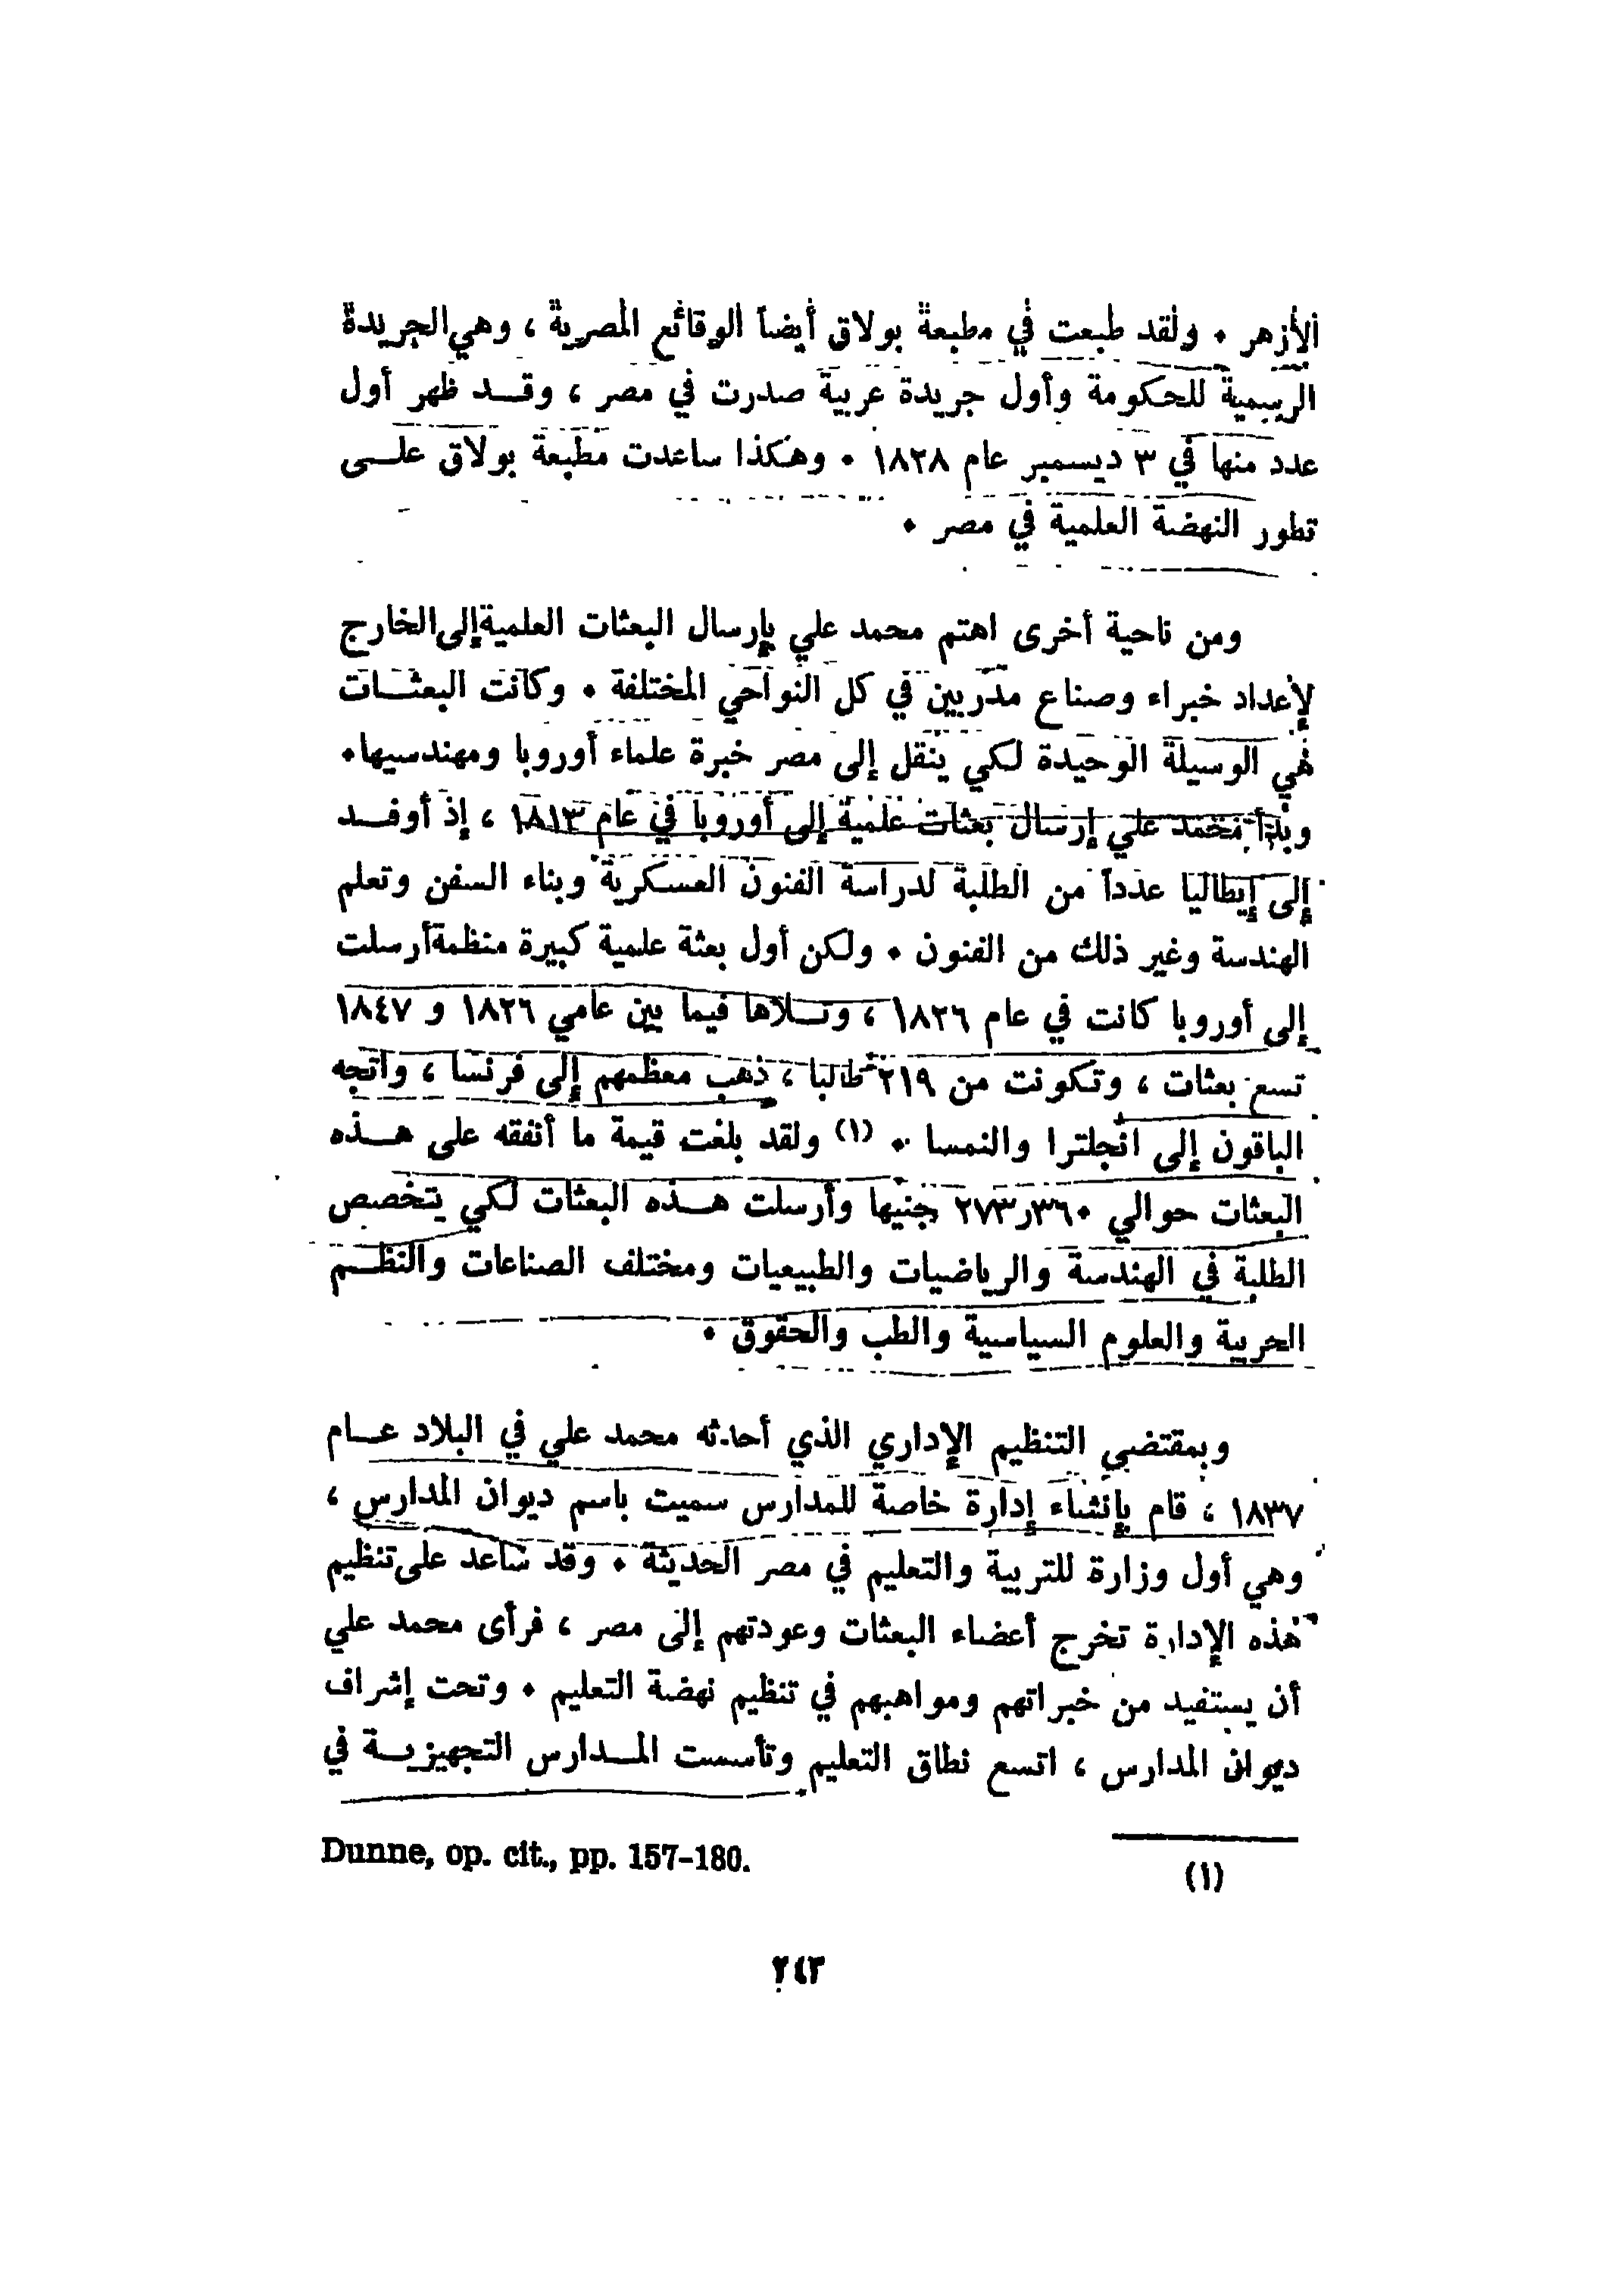 الأزهر . ولقد طبعت في مطبعة بولاق أيضاً الوقائع المصرية ، وهي الجريدة
الرسمية للحكومة وأول جريدة عربية صدرت في مصر ، وقـــد ظهر أول
عدد منها في ٣ ديسمبر عام ١٨٢٨ . وهكذا ساعدت مطبعة بولاق علــى
تطور النهضة العلمية في مصر .
ومن ناحية أخرى اهتم محمد علي بإرسال البعثات العلمية إلى الخارج
لإعداد خبراء وصناع مدربين في كل النواحي المختلفة . وكانت البعثــات
هي الوسيلة الوحيدة لكي ينقل إلى مصر خبرة علماء أوروبا ومهندسيها.
وبدأ محمد علي إرسال بعثات علمية إلى أوروبا في عام ١٨١٣ ، إذ أوفــد
إلى إيطاليا عدداً من الطلبة لدراسة الفنون العسكرية وبناء السفن وتعلم
الهندسة وغير ذلك من الفنون . ولكن أول بعثة علمية كبيرة منظمة أرسلت
إلى أوروبا كانت في عام ١٨٢٦ ، وتــلاها فيما بين عامي ١٨٢٦ و ١٨٤٧
تسع بعثات ، وتكونت من ٢١٩ طالبا ، ذهب معظمهم إلى فرنسا ، واتجه
الباقون إلى انجلترا والنمسا . (١) ولقد بلغت قيمة ما أنفقه على هـــذه
البعثات حوالي ٢٧٣ر٣٦٠ جنيها وأرسلت هــذه البعثات لكي يتخصص
الطلبة في الهندسة والرياضيات والطبيعيات ومختلف الصناعات والنظــم
الحربية والعلوم السياسية والطب والحقوق .
وبمقتضى التنظيم الإداري الذي أحدثه محمد علي في البلاد عــام
١٨٣٧ ، قام بإنشاء إدارة خاصة للمدارس سميت باسم ديوان المدارس ،
وهي أول وزارة للتربية والتعليم في مصر الحديثة . وقد ساعد على تنظيم
هذه الإدارة تخرج أعضاء البعثات وعودتهم إلى مصر ، فرأى محمد علي
أن يستفيد من خبراتهم ومواهبهم في تنظيم نهضة التعليم . وتحت إشراف
ديوان المدارس ، اتسع نطاق التعليم وتأسست المــدارس التجهيزيــة في
(١) Dunne, op. cit., pp. 157-180.
٢٤٣